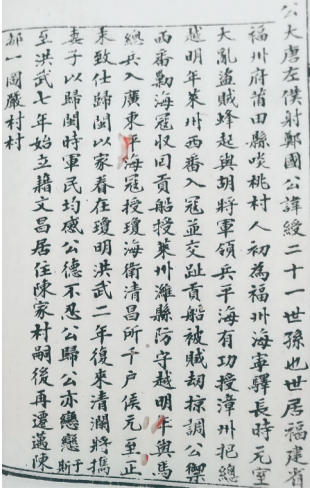 公大唐左僕射鄭國公諱綬二十一世孫也世居福建省
福州府莆田縣啖桃村人初為福州海軍驛長時元室
大亂盜賊蜂起與胡將軍領兵平海有功授漳州把總
越明年萊州西番入寇並交趾貢船被賊刼掠調公禦
西番勦海寇収回貢船授萊州濰縣防守越明年與馬
總兵入廣東平海寇授瓊海衛清昌所千戶侯元至正
末致仕歸閩以家眷在瓊明洪武二年復來清瀾將携
妻子以歸閩時軍民均感公德不忍公歸公亦戀戀于斯
至洪武七年始立籍文昌居住陳家村嗣後再遷邁陳
都一圖嚴村村